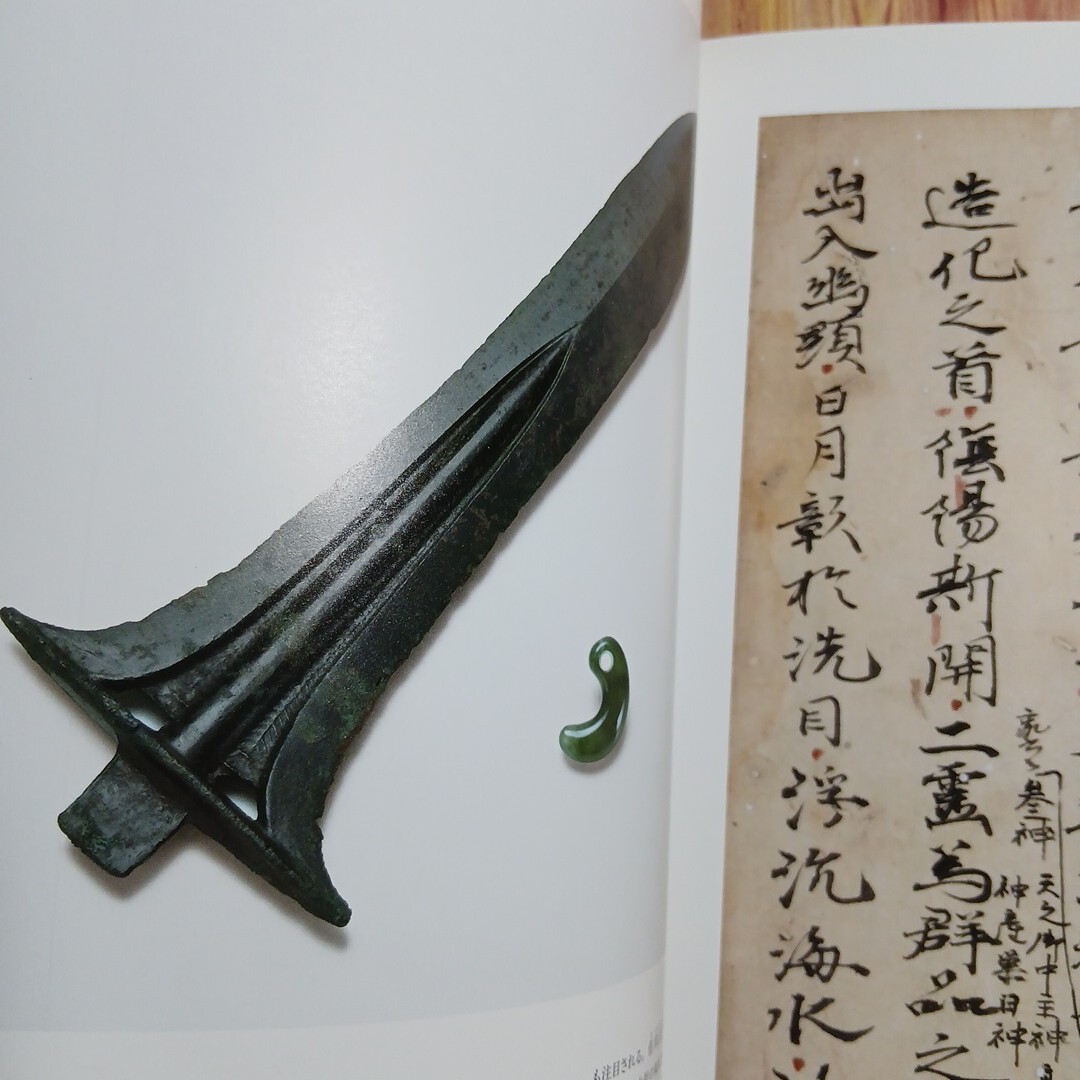 参神
天之御中主神
神産巣日神
造化之首陰陽斯開二霊為群品之
出入幽顕日月彰於洗目浮沉海水
も注目される。